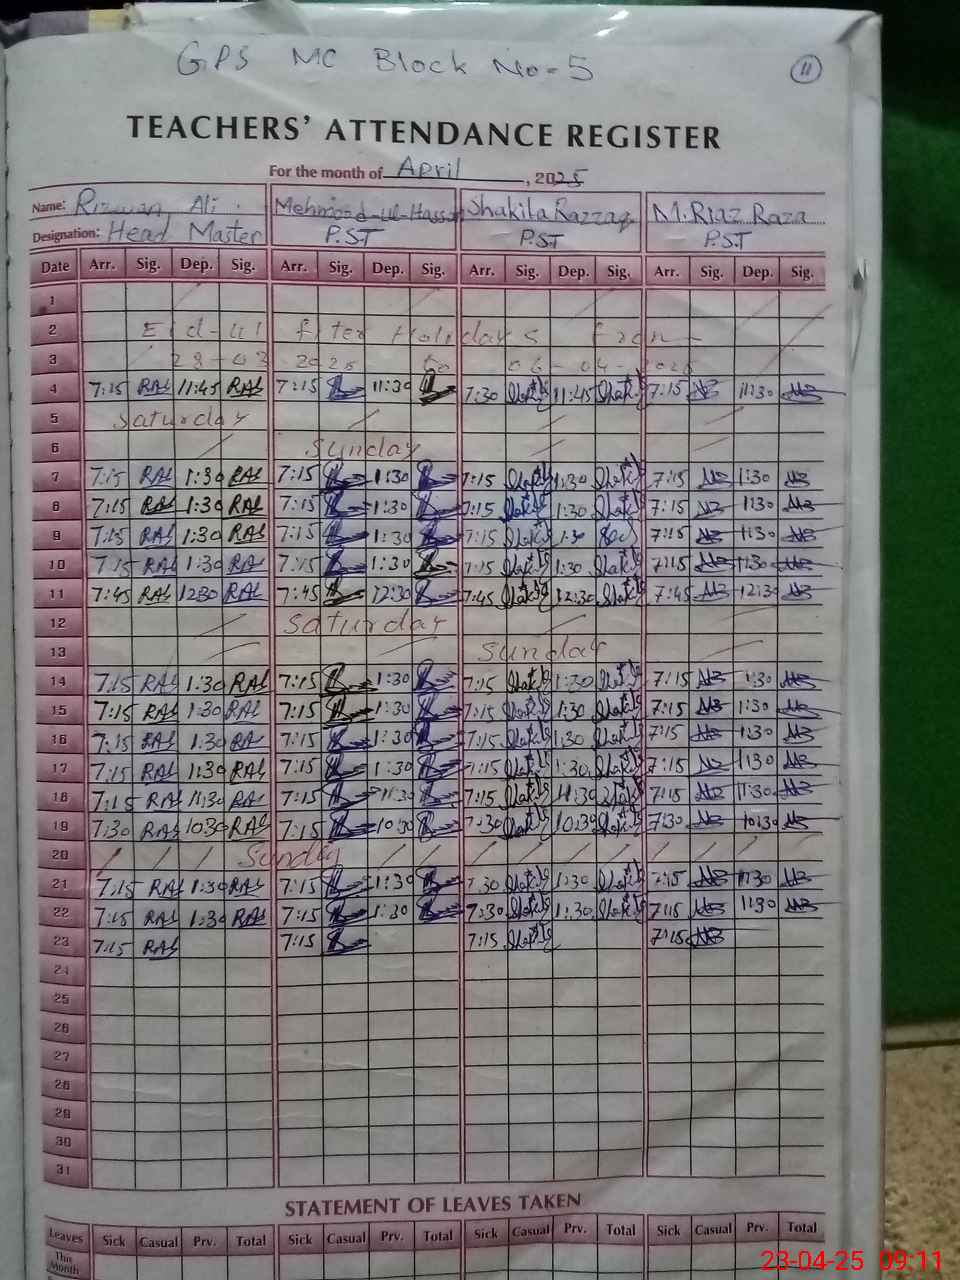 GPS MC Block No-5
11
TEACHERS' ATTENDANCE REGISTER
For the month of April, 2025
Name: Rizwan Ali. Mehmood-ul-Hassan Shakila Razzaq M. Riaz Raza
Designation: Head Master P.S.T P.S.T P.S.T
Date Arr. Sig. Dep. Sig. Arr. Sig. Dep. Sig. Arr. Sig. Dep. Sig. Arr. Sig. Dep. Sig.
1
2 Eid-ul fiter Holidays From
3 28-03-2025 to 06-04-2025
4 7:15 RAL 11:45 RAL 7:15 11:30 7:30 11:45 7:15 11:30
5 Saturday
6 Sunday
7 7:15 RAL 1:30 RAL 7:15 1:30 7:15 1:30 7:15 1:30
8 7:15 RAL 1:30 RAL 7:15 1:30 7:15 1:30 7:15 1:30
9 7:15 RAL 1:30 RAL 7:15 1:30 7:15 1:30 7:15 1:30
10 7:15 RAL 1:30 RAL 7:15 1:30 7:15 1:30 7:15 1:30
11 7:45 RAL 12:30 RAL 7:45 12:30 7:45 12:30 7:45 12:30
12 Saturday
13 Sunday
14 7:15 RAL 1:30 RAL 7:15 1:30 7:15 1:30 7:15 1:30
15 7:15 RAL 1:30 RAL 7:15 1:30 7:15 1:30 7:15 1:30
16 7:15 RAL 1:30 RAL 7:15 1:30 7:15 1:30 7:15 1:30
17 7:15 RAL 11:30 RAL 7:15 1:30 7:15 1:30 7:15 1:30
18 7:15 RAL 11:30 RAL 7:15 11:30 7:15 11:30 7:15 11:30
19 7:30 RAL 10:30 RAL 7:15 10:30 7:30 10:30 7:30 10:30
20 Sunday
21 7:15 RAL 1:30 RAL 7:15 1:30 7:30 1:30 7:15 1:30
22 7:15 RAL 1:30 RAL 7:15 1:30 7:30 1:30 7:15 1:30
23 7:15 RAL 7:15 7:15 7:15
24
25
26
27
28
29
30
31
STATEMENT OF LEAVES TAKEN
Leaves Sick Casual Prv. Total Sick Casual Prv. Total Sick Casual Prv. Total Sick Casual Prv. Total
This Month
23-04-25 09:11